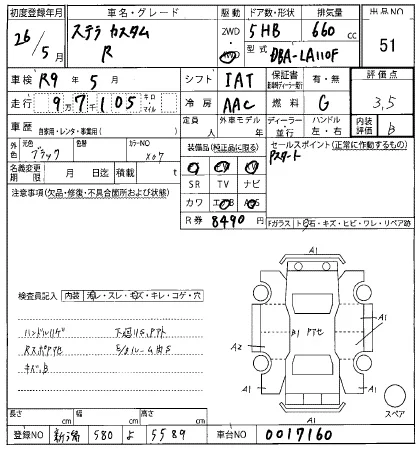 初度登録年月 車名・グレード 駆動 ドア数・形状 排気量 出品NO
26/5月 ステラ カスタム R 2WD 4WD 5HB 660cc 51
型式 DBA-LA110F
車検 R9年 5月 シフト IAT 保証書 有・無 評価点
走行 97105 キロ マイル 冷房 AAC 燃料 G 3.5
車歴 自家用・レンタ・事業用( ) 乗員 人 外車モデル 年 ディーラー 並行 ハンドル 左・右 内装評価 B
外色 ブラック 元色 色替 カラーNO X07 装備品(純正品に限る) セールスポイント(正常に作動するもの)
Pスタート
名義変更期限 月 日迄 積載 t
注意事項(欠品・修復・不具合箇所および状態) SR TV ナビ
カワ エアB ABS
R券 8490円 Fガラス トビ石・キズ・ヒビ・ワレ・リペア跡
A1
検査員記入 内装 汚レ・スレ・キズ・キレ・コゲ・穴
A1
A1
ハンドルハゲ 下廻りS,Pアト
Rスポアセ
キズ、B
B1 アセ
A2
A1
A1 A1
A1
スペア
長さ cm 幅 cm 高さ cm
登録NO 新潟 580 よ 5589 車台NO 0017160